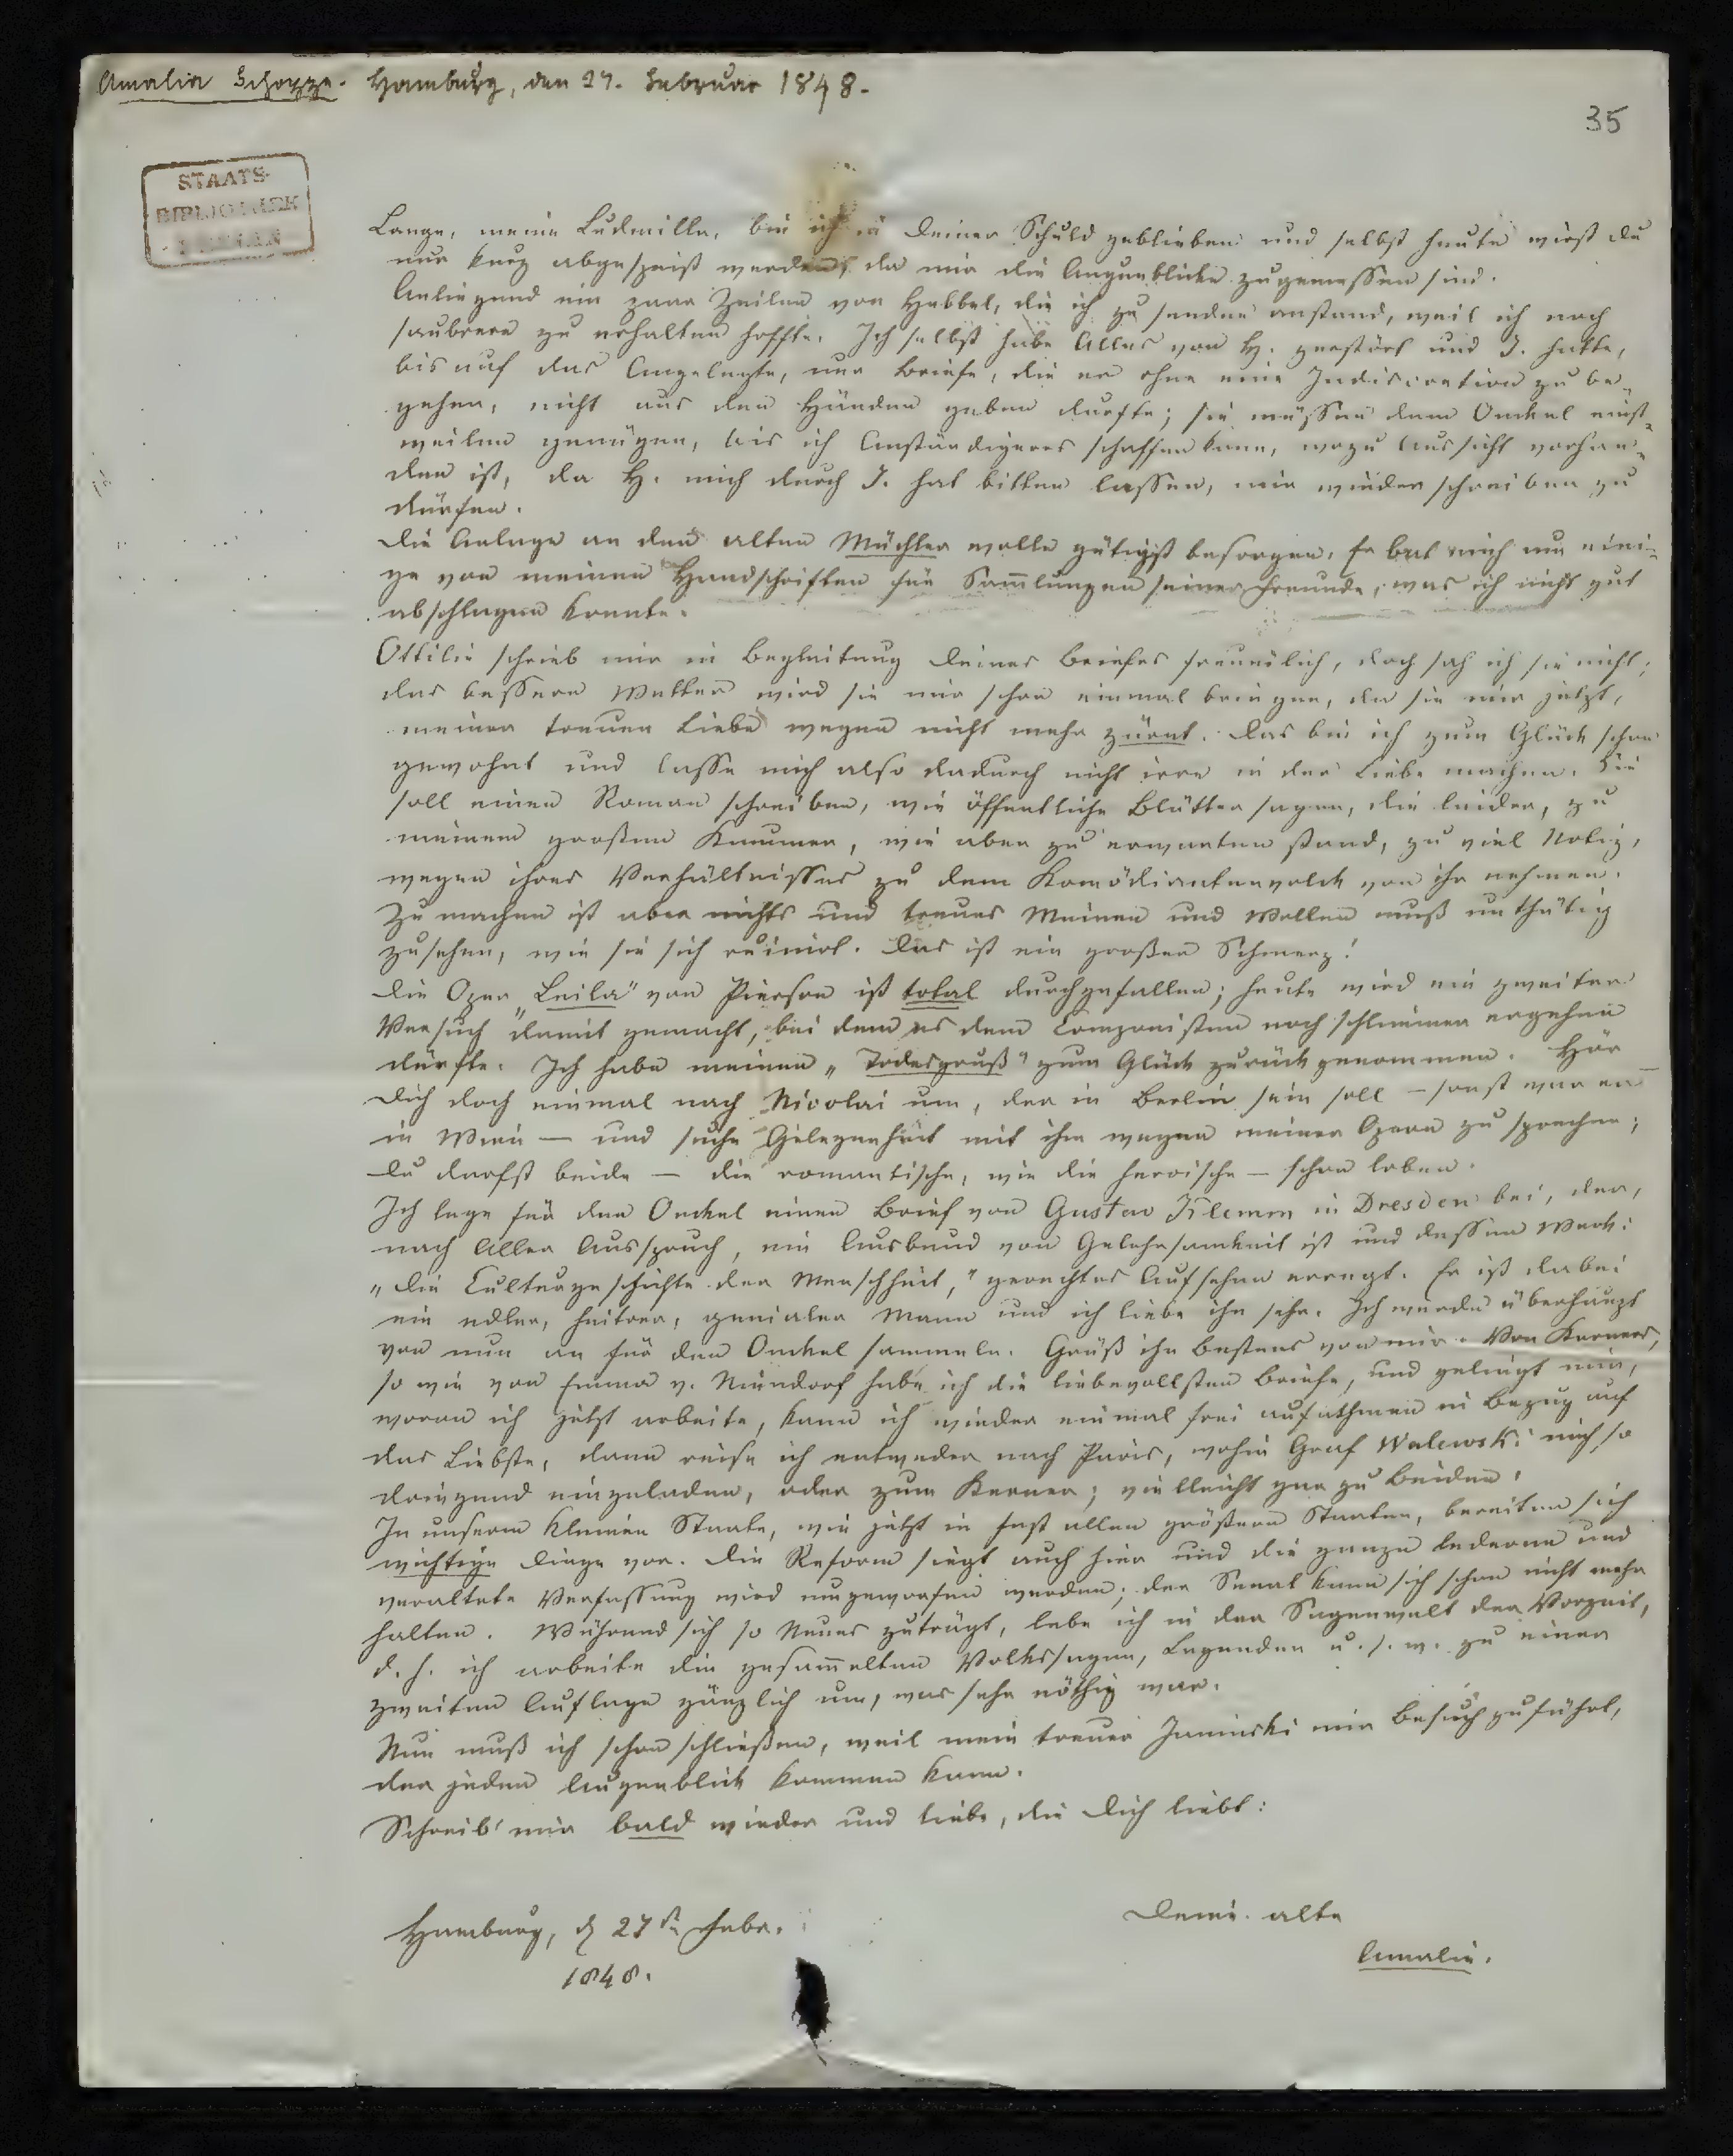 Amalia Schoppe. Hamburg, den 27. Februar 1848.
35
STAATS-
BIBLIOTHEK
Lange, meine Ludmilla, bin ich in Deiner Schuld geblieben und selbst heute wirst Du
nur kurz abgespeist werden, da mir die Augenblicke zugemessen sind.
Anliegend ein paar Zeilen von Hebbel, die ich zu senden anstand, weil ich noch
saubrere zu erhalten hoffte. Ich selbst habe Alles von H. zerstört und J. hatte,
bis auf das Angelegte, nur Briefe, die er ohne eine Indiscretion zu be-
gehen, nicht aus den Händen geben durfte; sie müssen dem Onckel einst-
weilen genügen, bis ich Anständigeres schaffen kann, wozu Aussicht vorhan-
den ist, da H. mich durch J. hat bitten lassen, mir wieder schreiben zu
dürfen.
Die Anlage an den alten Müchler wolle gütigst besorgen. Er bat mich um eini-
ge von meinen Handschriften für Sam̅lungen seiner Freunde, was ich nicht gut
abschlagen konnte.
Ottilie schrieb mir in Begleitung Deines Briefes freundlich, doch sah ich sie nicht;
das bessere Wetter wird sie mir schon einmal bringen, da sie mir jetzt,
meiner treuen Liebe wegen nicht mehr zürnt. Das bin ich zum Glück schon
gewohnt und lasse mich also dadurch nicht irre in der Liebe machen. Sie
soll einen Roman schreiben, wie öffentliche Blätter sagen, die leider, zu
meinem großen Kummer, wie aber zu erwarten stand, zu viel Notiz,
wegen ihres Verhältnisses zu dem Komödiantenvolck von ihr nehmen.
Zu machen ist aber nichts und treues Meinen und Wollen muß unthätig
zusehen, wie sie sich ruinirt. Das ist ein großer Schmerz!
Die Oper „Leila" von Pierson ist total durchgefallen; heute wird ein zweiter
Versuch damit gemacht, bei dem es dem Componisten noch schlimmer ergehen
dürfte. Ich habe meinen „Todesgruß" zum Glück zurückgenommen. Hör
Dich doch einmal nach Nicolai um, der in Berlin sein soll – sonst war er
in Wien – und suche Gelegenheit mit ihm wegen meiner Opern zu sprechen;
Du darfst beide – die romantische, wie die heroische – schon loben.
Ich lege für den Onckel einen Brief von Gustav Klemm in Dresden bei, der,
nach Aller Ausspruch, ein Ausbund von Gelehrsamkeit ist und dessen Werk:
„Die Culturgeschichte der Menschheit," gerechtes Aufsehen erregt. Er ist dabei
ein edler, heitrer, genialer Mann und ich liebe ihn sehr. Ich werde überhaupt
von nun an für den Onckel sammeln. Grüß ihn bestens von mir. Von Kerners,
so wie von Emma v. Niendorf habe ich die liebevollsten Briefe, und gelingt mir,
woran ich jetzt arbeite, kann ich wieder einmal frei aufathmen in Bezug auf
das Liebste, dann reise ich entweder nach Paris, wohin Graf Walewski mich so
dringend eingeladen, oder zum Kerner; vielleicht gar zu Beiden.
In unserm kleinen Staate, wie jetzt in fast allen größern Staaten, bereiten sich
wichtige Dinge vor. Die Reform siegt auch hier und die ganze lederne und
veraltete Verfassung wird umgeworfen werden; der Senat kann sich schon nicht mehr
halten. Während sich so Neues zuträgt, lebe ich in der Sagenwelt der Vorzeit,
d. h. ich arbeite die gesam̅elten Volkssagen, Legenden u. s. w. zu einer
zweiten Auflage gänzlich um, was sehr nöthig war.
Nun muß ich schon schließen, weil mein treuer Janinski mir Besuch zuführt,
der jeden Augenblick kommen kann.
Schreib' mir bald wieder und liebe, die Dich liebt:
Deine alte
Amalie.
Hamburg, d 27ten Febr.
1848.